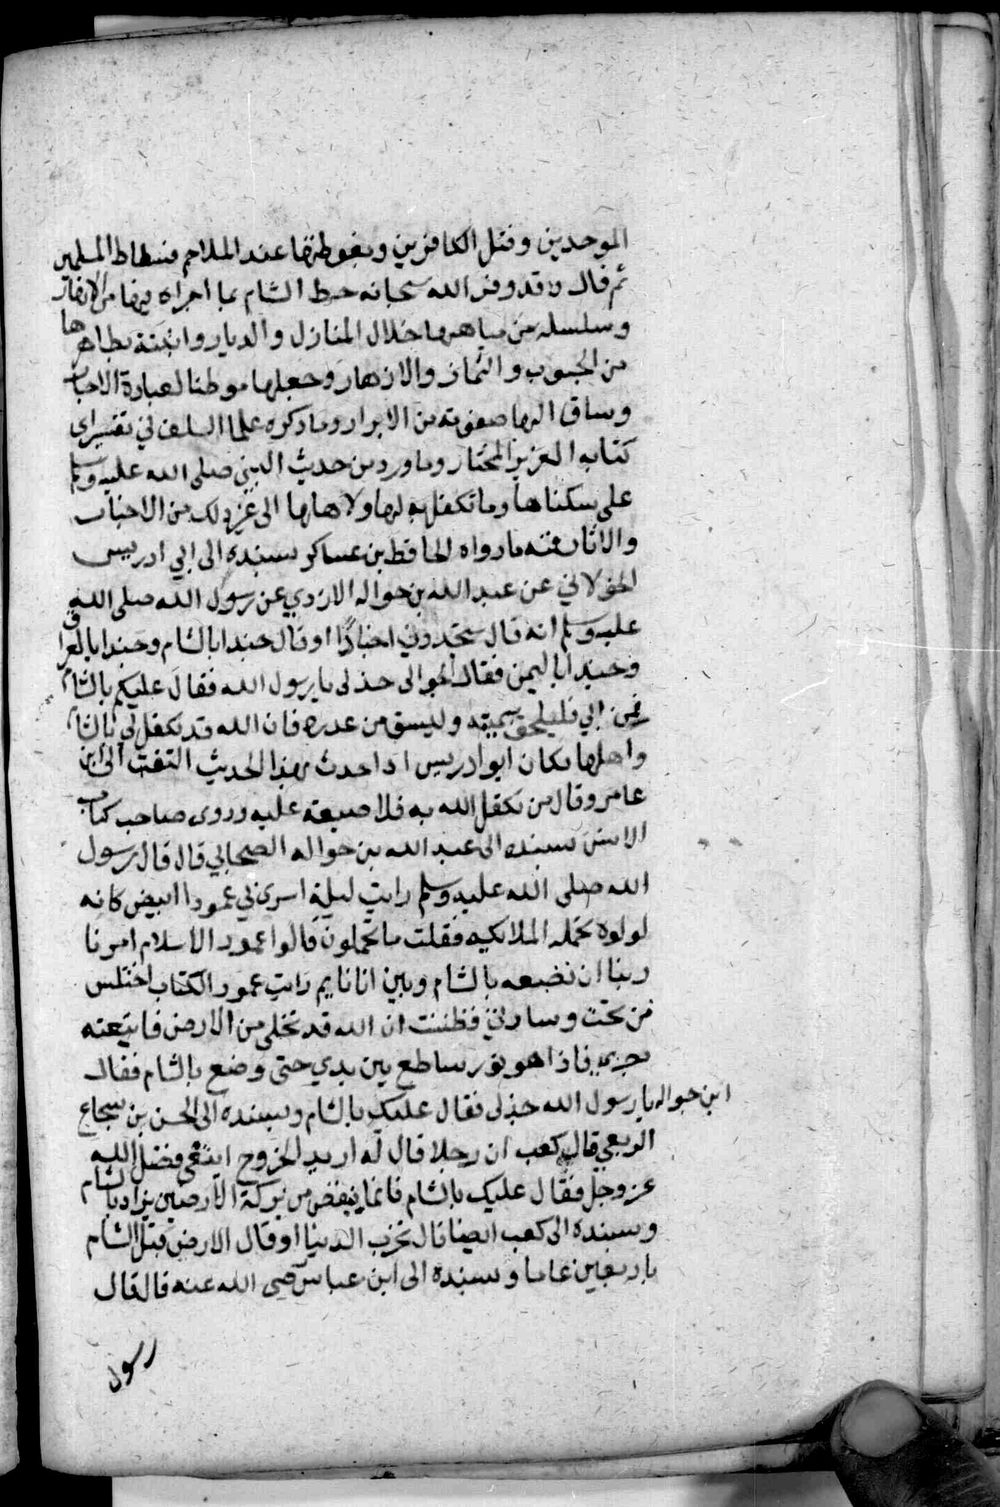 الموحدين وقتل الكافرين وبغوطتها عند الملاحم فسطاط المسلمين
ثم قال وقد وفر الله سبحانه حظ الشام بما اجراه فيها من الانهار
وسلسله من مياهها خلال المنازل والديار وانبته بظاهرها
من الحبوب والثمار والازهار وجعلها موطنا لعبادة الاخيار
وساق اليها صفوته من الابرار وما ذكره علما السلف في تفسير اى
كتابه العزيز المختار وما ورد من حديث النبي صلى الله عليه وسلم
على سكناها وما تكفل به لها ولاهلها الى غير ذلك من الاخبار
والاثار فمنه ما رواه الحافظ بن عساكر بسنده الى ابي ادريس
الخولاني عن عبد الله بن حواله الازدي عن رسول الله صلى الله
عليه وسلم انه قال ستجدون اجنادًا او قال جندا بالشام وجندا بالعراق
وجندا باليمن فقال الحوالى خذ لى يا رسول الله فقال عليكم بالشام
فمن ابي فليلحق بيمنه وليسق من غدره فان الله قد تكفل لي بالشام
واهلها فكان ابو ادريس اذا حدث بهذا الحديث التفت الى ابن
عامر وقال من تكفل الله به فلا ضيعة عليه وروى صاحب كتاب
الانس بسنده الى عبد الله بن حواله الصحابي قال قال رسول
الله صلى الله عليه وسلم رايت ليلة اسرى بي عمودا ابيض كانه
لولوة تحمله الملائكيه فقلت ما تحملون قالوا عمود الاسلام امرنا
ربنا ان نضعه بالشام وبين انا نايم رايت عمود الكتاب اختلس
من تحت وسادتي فظننت ان الله قد تخلى من الارض فاتبعته
بصري فاذا هو نور ساطع بين يدي حتى وضع بالشام فقال
ابن حواله يا رسول الله خذ لى فقال عليك بالشام وبسنده الى الحسن بن شجاع
الربعي قال كعب ان رجلا قال له اريد الخروج ابتغى فضل الله
عز وجل فقال عليك بالشام فانما ينقص من بركة الارضين يزاد بالشام
وبسنده الى كعب ايضا قال تخرب الدنيا او قال الارض قبل الشام
باربعين عاما وبسنده الى ابن عباس رضى الله عنه قال قال
رسول